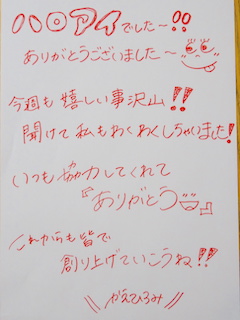 ハロアイでした〜!!
ありがとうございました〜
今週も嬉しい事沢山!!
聞けて私もわくわくしちゃいました!
いつも協力してくれて
『ありがとう』
これからも皆で
創り上げていこうね!!
\\かえひろみ//